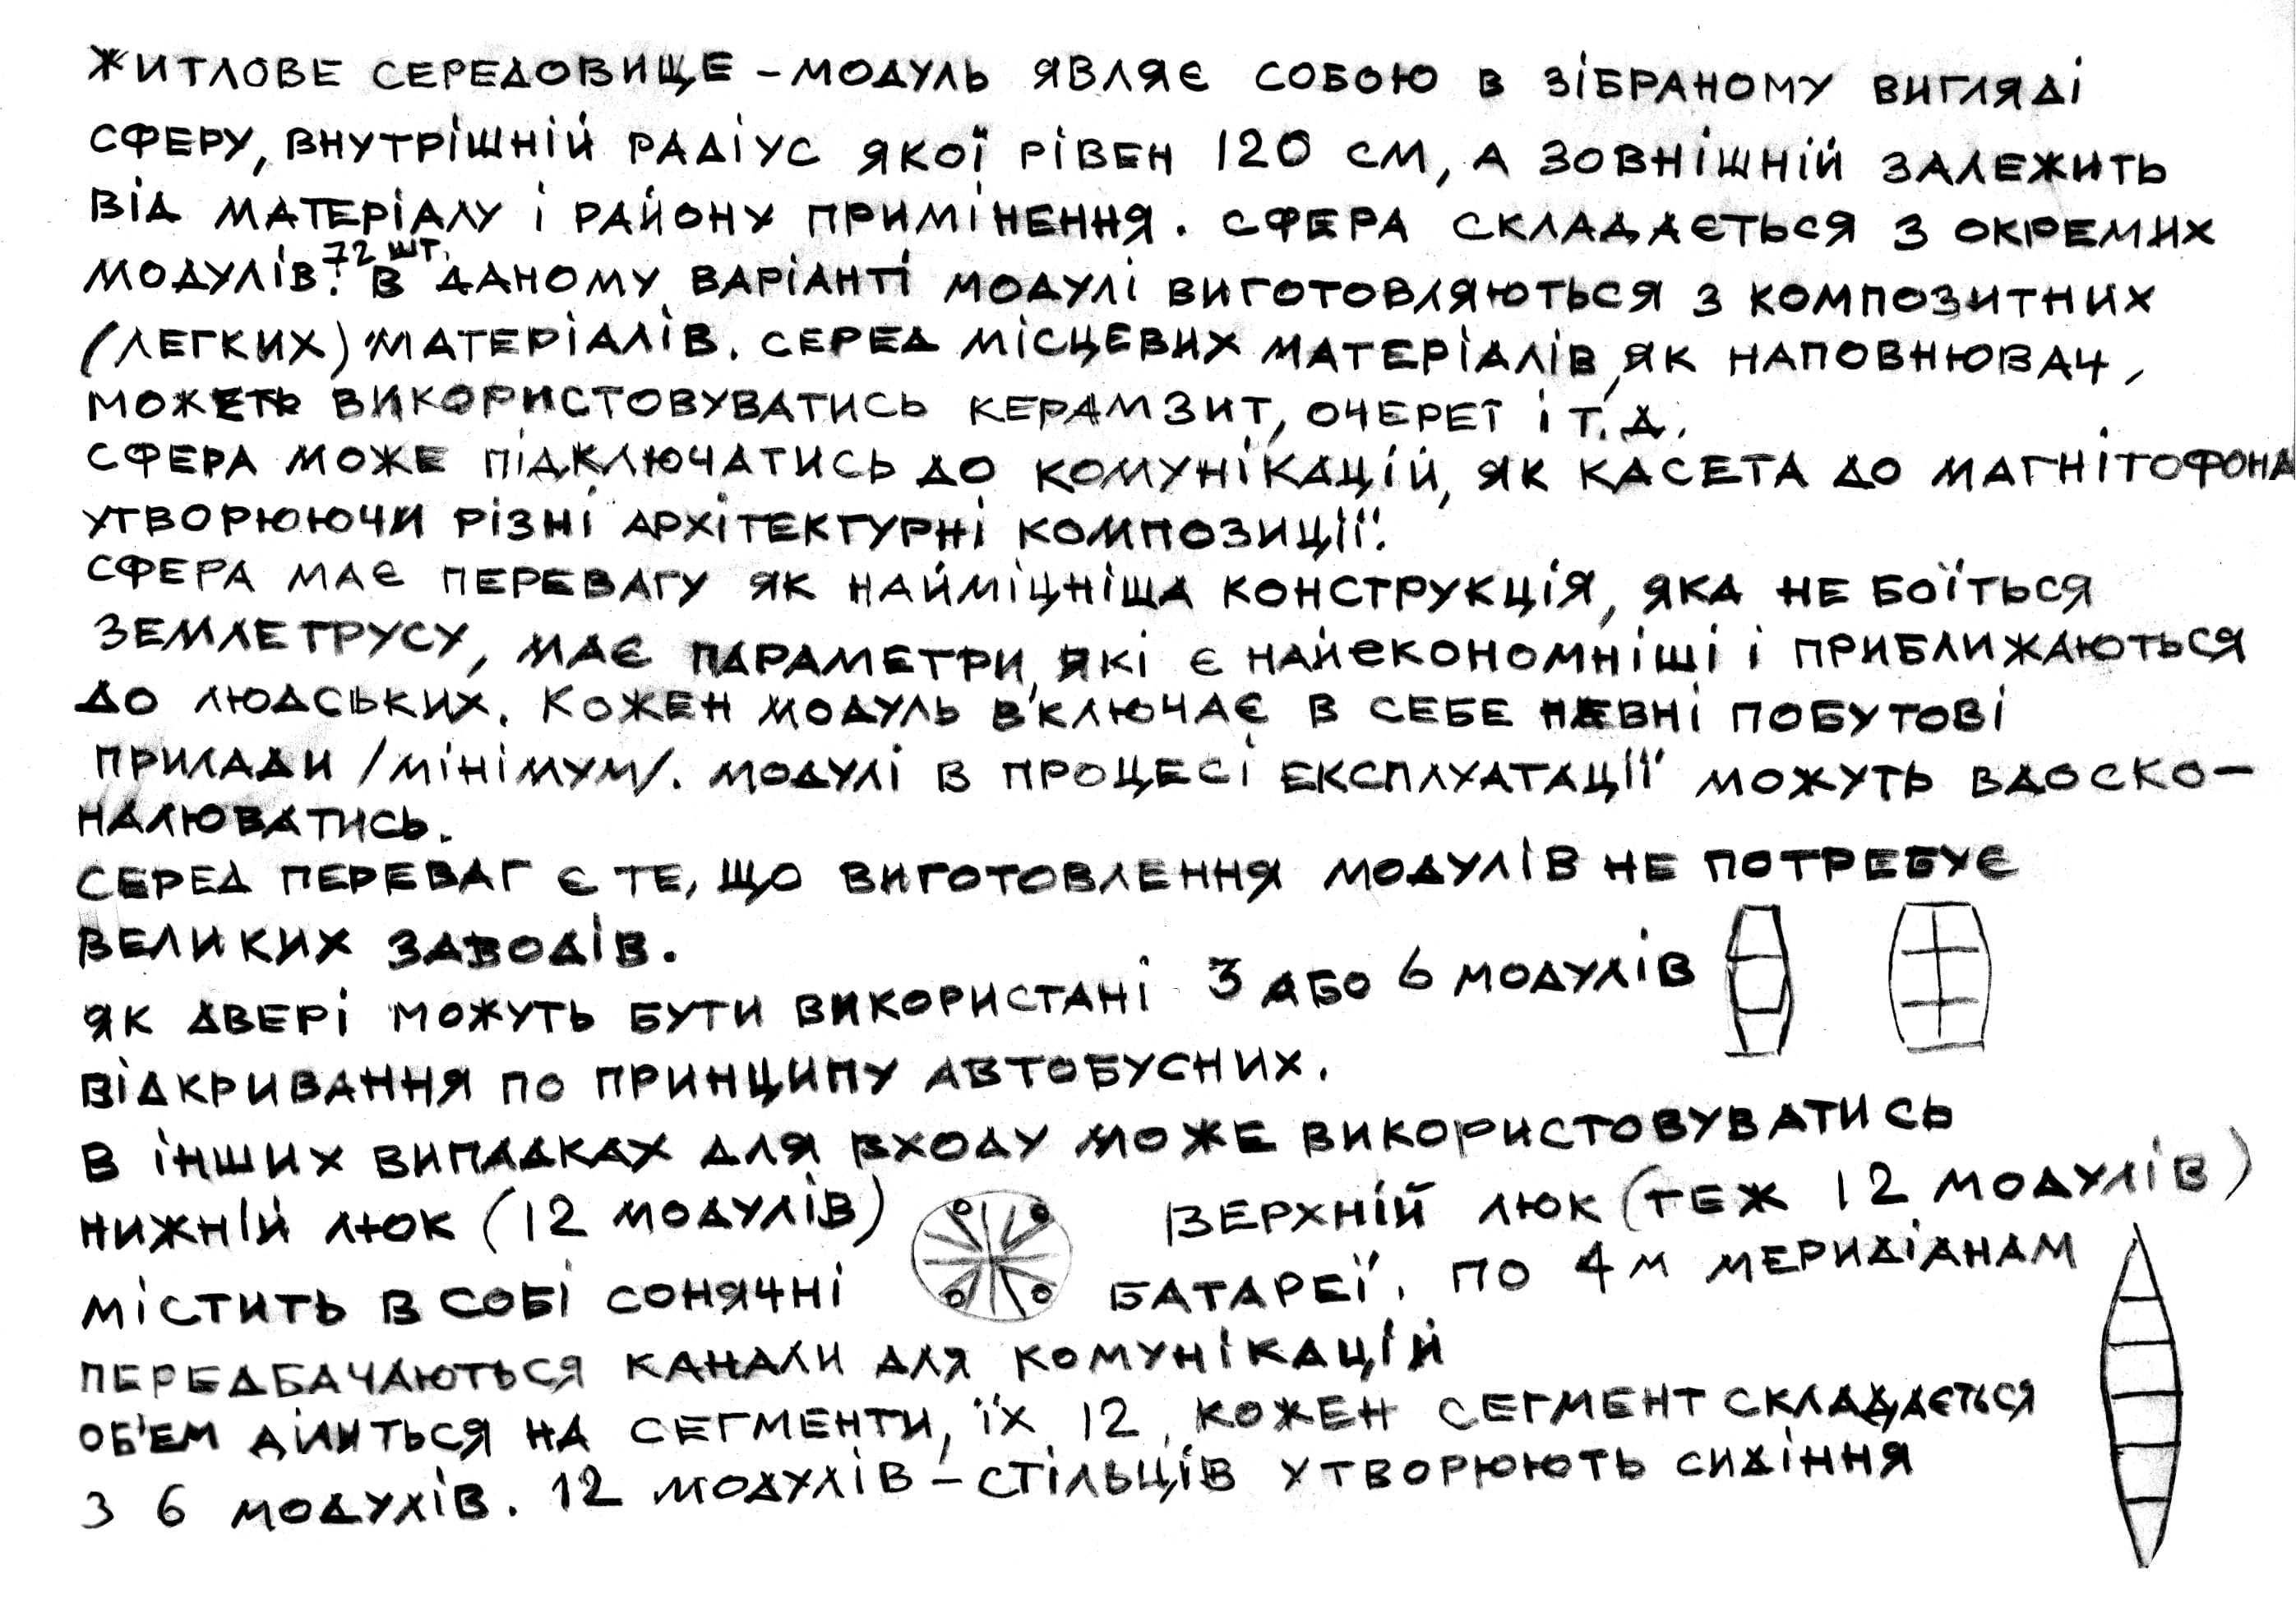 ЖИТЛОВЕ СЕРЕДОВИЩЕ – МОДУЛЬ ЯВЛЯЄ СОБОЮ В ЗІБРАНОМУ ВИГЛЯДІ
СФЕРУ, ВНУТРІШНІЙ РАДІУС ЯКОЇ РІВЕН 120 СМ, А ЗОВНІШНІЙ ЗАЛЕЖИТЬ
ВІД МАТЕРІАЛУ І РАЙОНУ ПРИМІНЕННЯ. СФЕРА СКЛАДАЄТЬСЯ З ОКРЕМИХ
72 ШТ.
МОДУЛІВ. В ДАНОМУ ВАРІАНТІ МОДУЛІ ВИГОТОВЛЯЮТЬСЯ З КОМПОЗИТНИХ
(ЛЕГКИХ) МАТЕРІАЛІВ. СЕРЕД МІСЦЕВИХ МАТЕРІАЛІВ, ЯК НАПОВНЮВАЧ,
МОЖЕТЬ ВИКОРИСТОВУВАТИСЬ КЕРАМЗИТ, ОЧЕРЕТ І Т.Д.
СФЕРА МОЖЕ ПІДКЛЮЧАТИСЬ ДО КОМУНІКАЦІЙ, ЯК КАСЕТА ДО МАГНІТОФОНА
УТВОРЮЮЧИ РІЗНІ АРХІТЕКТУРНІ КОМПОЗИЦІЇ.
СФЕРА МАЄ ПЕРЕВАГУ ЯК НАЙМІЦНІША КОНСТРУКЦІЯ, ЯКА НЕ БОЇТЬСЯ
ЗЕМЛЕТРУСУ, МАЄ ПАРАМЕТРИ, ЯКІ Є НАЙЕКОНОМНІШІ І ПРИБЛИЖАЮТЬСЯ
ДО ЛЮДСЬКИХ. КОЖЕН МОДУЛЬ В'КЛЮЧАЄ В СЕБЕ ПЕВНІ ПОБУТОВІ
ПРИЛАДИ /МІНІМУМ/. МОДУЛІ В ПРОЦЕСІ ЕКСПЛУАТАЦІЇ МОЖУТЬ ВДОСКО–
НАЛЮВАТИСЬ.
СЕРЕД ПЕРЕВАГ Є ТЕ, ЩО ВИГОТОВЛЕННЯ МОДУЛІВ НЕ ПОТРЕБУЄ
ВЕЛИКИХ ЗАВОДІВ.
ЯК ДВЕРІ МОЖУТЬ БУТИ ВИКОРИСТАНІ 3 АБО 6 МОДУЛІВ
ВІДКРИВАННЯ ПО ПРИНЦИПУ АВТОБУСНИХ.
В ІНШИХ ВИПАДКАХ ДЛЯ ВХОДУ МОЖЕ ВИКОРИСТОВУВАТИСЬ
НИЖНІЙ ЛЮК (12 МОДУЛІВ) ВЕРХНІЙ ЛЮК (ТЕЖ 12 МОДУЛІВ)
МІСТИТЬ В СОБІ СОНЯЧНІ БАТАРЕЇ. ПО 4 М МЕРИДІАНАМ
ПЕРЕДБАЧАЮТЬСЯ КАНАЛИ ДЛЯ КОМУНІКАЦІЙ
ОБ'ЕМ ДІЛИТЬСЯ НА СЕГМЕНТИ, ЇХ 12, КОЖЕН СЕГМЕНТ СКЛАДАЄТЬСЯ
З 6 МОДУЛІВ. 12 МОДУЛІВ – СТІЛЬЦІВ УТВОРЮЮТЬ СИДІННЯ